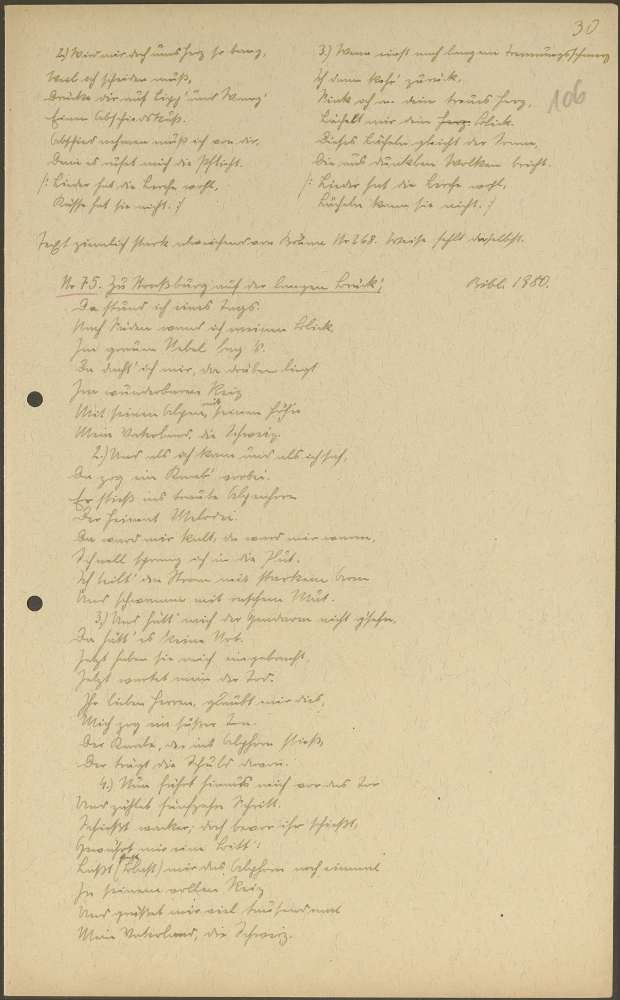 30
106
2.) Wird mir doch ums Herz so bang,
Weil ich scheiden muß,
Drücke dir auf Lipp' und Wang'
Einen Abschiedskuß.
Abschied nehmen muß ich von dir,
Denn es rufet mich die Pflicht.
/: Lieder hat die Lerche wohl,
Küsse hat sie nicht. :/
3.) Wenn einst nach langem Trennungsschmerz
Ich dann kehr' zurück,
Sink ich an dein treues Herz,
Lächelt mir dein Herz Blick.
Dieses Lächeln gleicht der Sonne,
Die aus dunklen Wolken bricht.
/: Lieder hat die Lerche wohl,
Lächeln kann sie nicht. :/
Text ziemlich stark abweichend von Nr 268. Weise fehlt daselbst.
Nr 75. Zu Straßburg auf der langen Brück',
Bibl. 1980.
Da stund ich eines Tags.
Nach Süden wandt ich meinen Blick
Im grauen Nebel lag's.
Da dacht' ich mir, da drüben liegt
In wunderbarem Reiz
Mit seinen Alpen, mit seinen Höh'n
Mein Vaterland, die Schweiz.
2.) Und als ich kam und als ich sah,
Da zog ein Knab' vorbei.
Er stieß ins traute Alpenhorn
Der Heimat Melodei.
Da ward mir kalt, da ward mir warm,
Schnell sprang ich in die Flut.
Ich teilt' den Strom mit starkem Arm
Und schwamm mit raschem Mut.
3.) Und hätt' mich der Gendarm nicht g'sehn,
Da hätt' es keine Not.
Jetzt haben sie mich eingebracht,
Jetzt wartet mein der Tod.
Ihr lieben Herren, glaubt mir dies,
Mich zog ein süßer Ton.
Der Knabe, der ins Alphorn stieß,
Der trägt die Schuld davon.
4.) Nun führt hinaus mich vor das Tor
Und zählet fünfzehn Schritt.
Schießt wacker; doch bevor ihr schießt,
Gewährt mir eine Bitt':
Laßt (Blast) mir das Alphorn noch einmal
In seinem vollen Reiz
Und grüßet mir viel tausendmal
Mein Vaterland, die Schweiz.